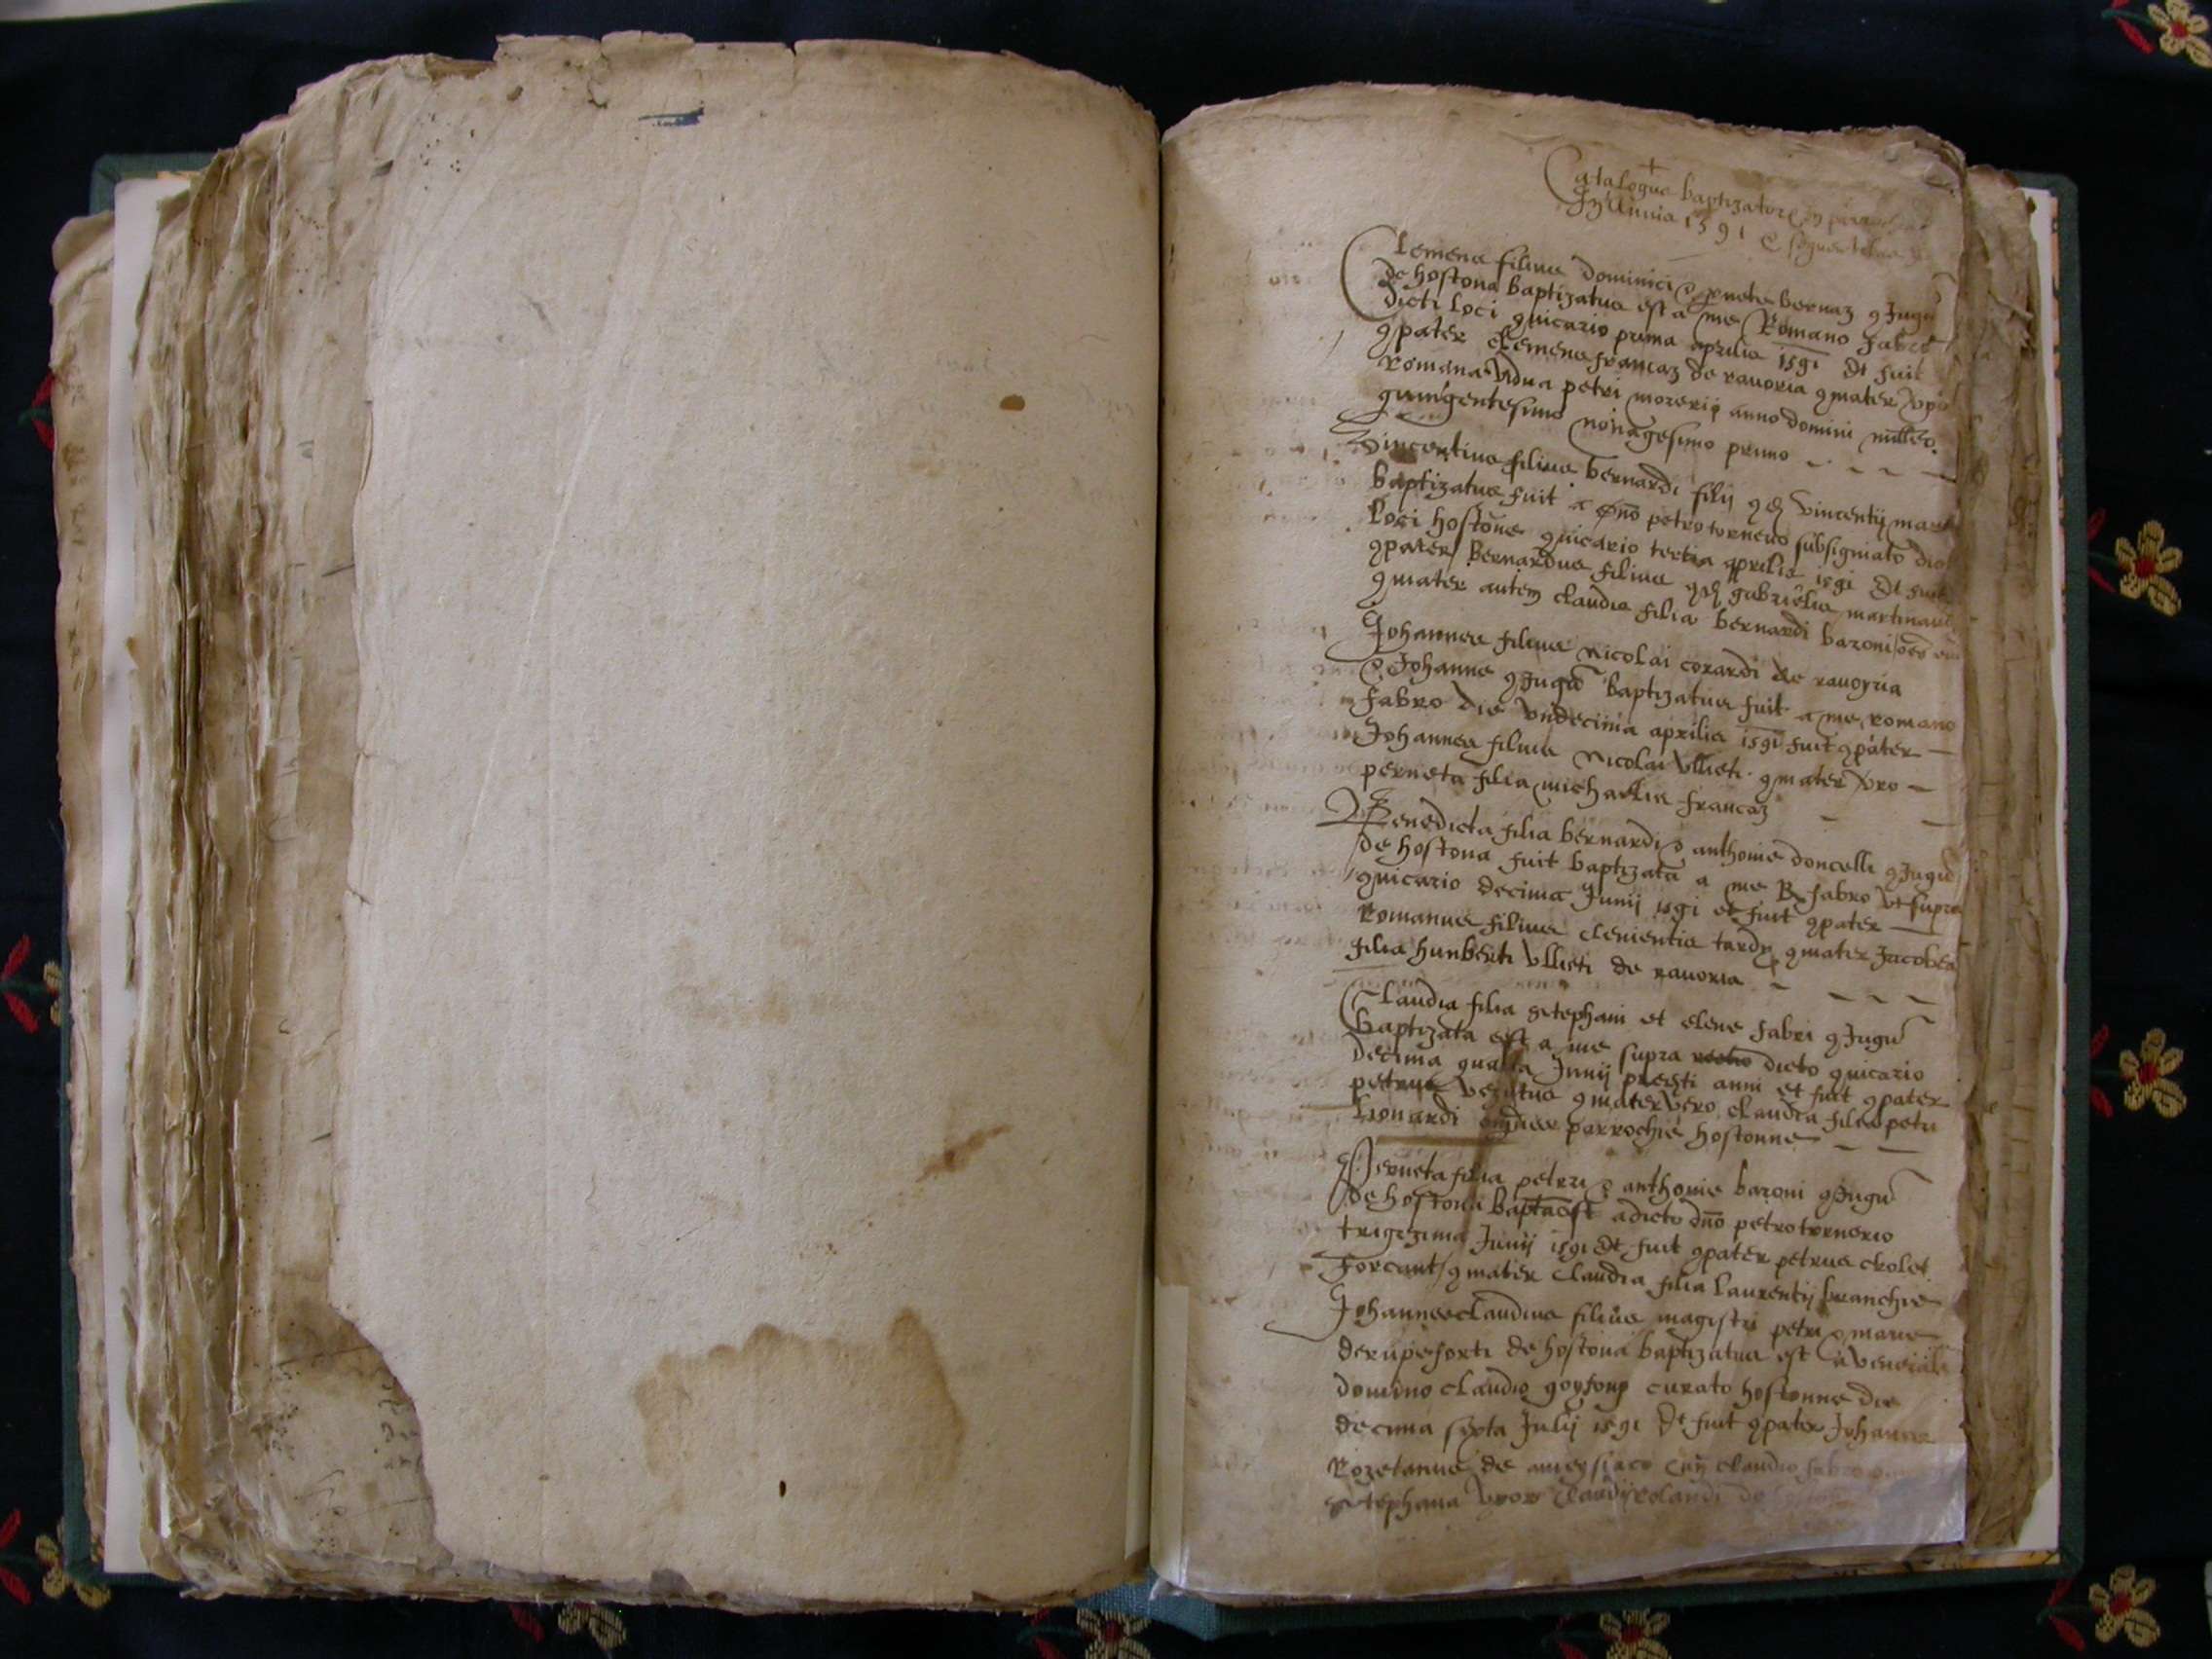 +
Catalogus baptizatorum in
In Annis 1591 &
Clemens filius dominici & pnete bernaz 9Jugu
de hostona baptizatus est a me Romano fabro
dicti loci 9uicario prima aprilis 1591 Et fuit
9pater Clemens francaz de rauoria 9mater
Romana vidua petri morerij anno domini milleo
quingentesimo nonagesimo primo
Vincentius filius bernardi filij 9d vincentij
baptizatus fuit a dno petro torneno subsignato
loci hostone 9uicario tertia aprilis 1591 Et fuit
9pater Bernardus filius 9d gabrielis martinand
9mater autem claudia filia bernardi baroni
Johannes filius nicolai corardi de rauoyria
& Johanne 9Jugu baptizatus fuit a me romano
fabro die vndecima aprilis 1591 fuit 9pater
Johannes filius nicolai vllieti 9mater vro
perneta filia michaelis francaz
Benedicta filia bernardi & anthonie doncelli 9Jugu
de hostona fuit baptizata a me R fabro vt supra
9uicario decima Junij 1591 et fuit 9pater
Romanus filius clementis tardy 9mater Jacobea
filia hunberti vllieti de rauoria
Claudia filia stephani et elene fabri 9Jugu
baptizata est a me supra dicto 9uicario
decima quarta Junij pnti anni et fuit 9pater
petrus 9mater vero claudia filia petri
Lionardi parrochie hostonne
Perneta filia petri & anthonie baroni 9Jugu
de hostona bapta est a dicto dno petro tornerio
trigezima Junij 1591 Et fuit 9pater petrus
9mater claudia filia laurentij branchie
Johannes claudius filius magistri petri & marie
de rupeforti de hostona baptizatus est a
domino claudio goyfong curato hostonne die
decima sexta Julij 1591 Et fuit 9pater Johannes
Rozetanus de claudio fabro
stephana vxor claudij rolandi de